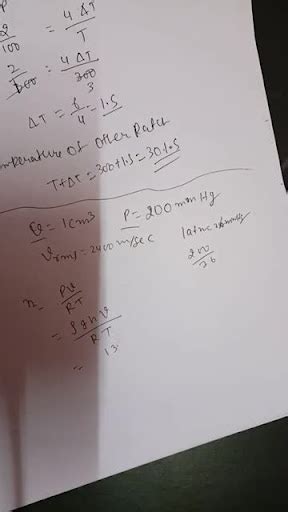 P
2/100 = 4 ΔT/T
2/100 = 4 ΔT/300
3
ΔT = 6/4 = 1.5
mperature of Other Patch
T+ΔT = 300+1.5 = 301.5
= 1cm3 P = 200 mm Hg
Vrms = 2400 m/sec 1atm
200/76
n = PV/RT
= ρgh V/RT
= 13.